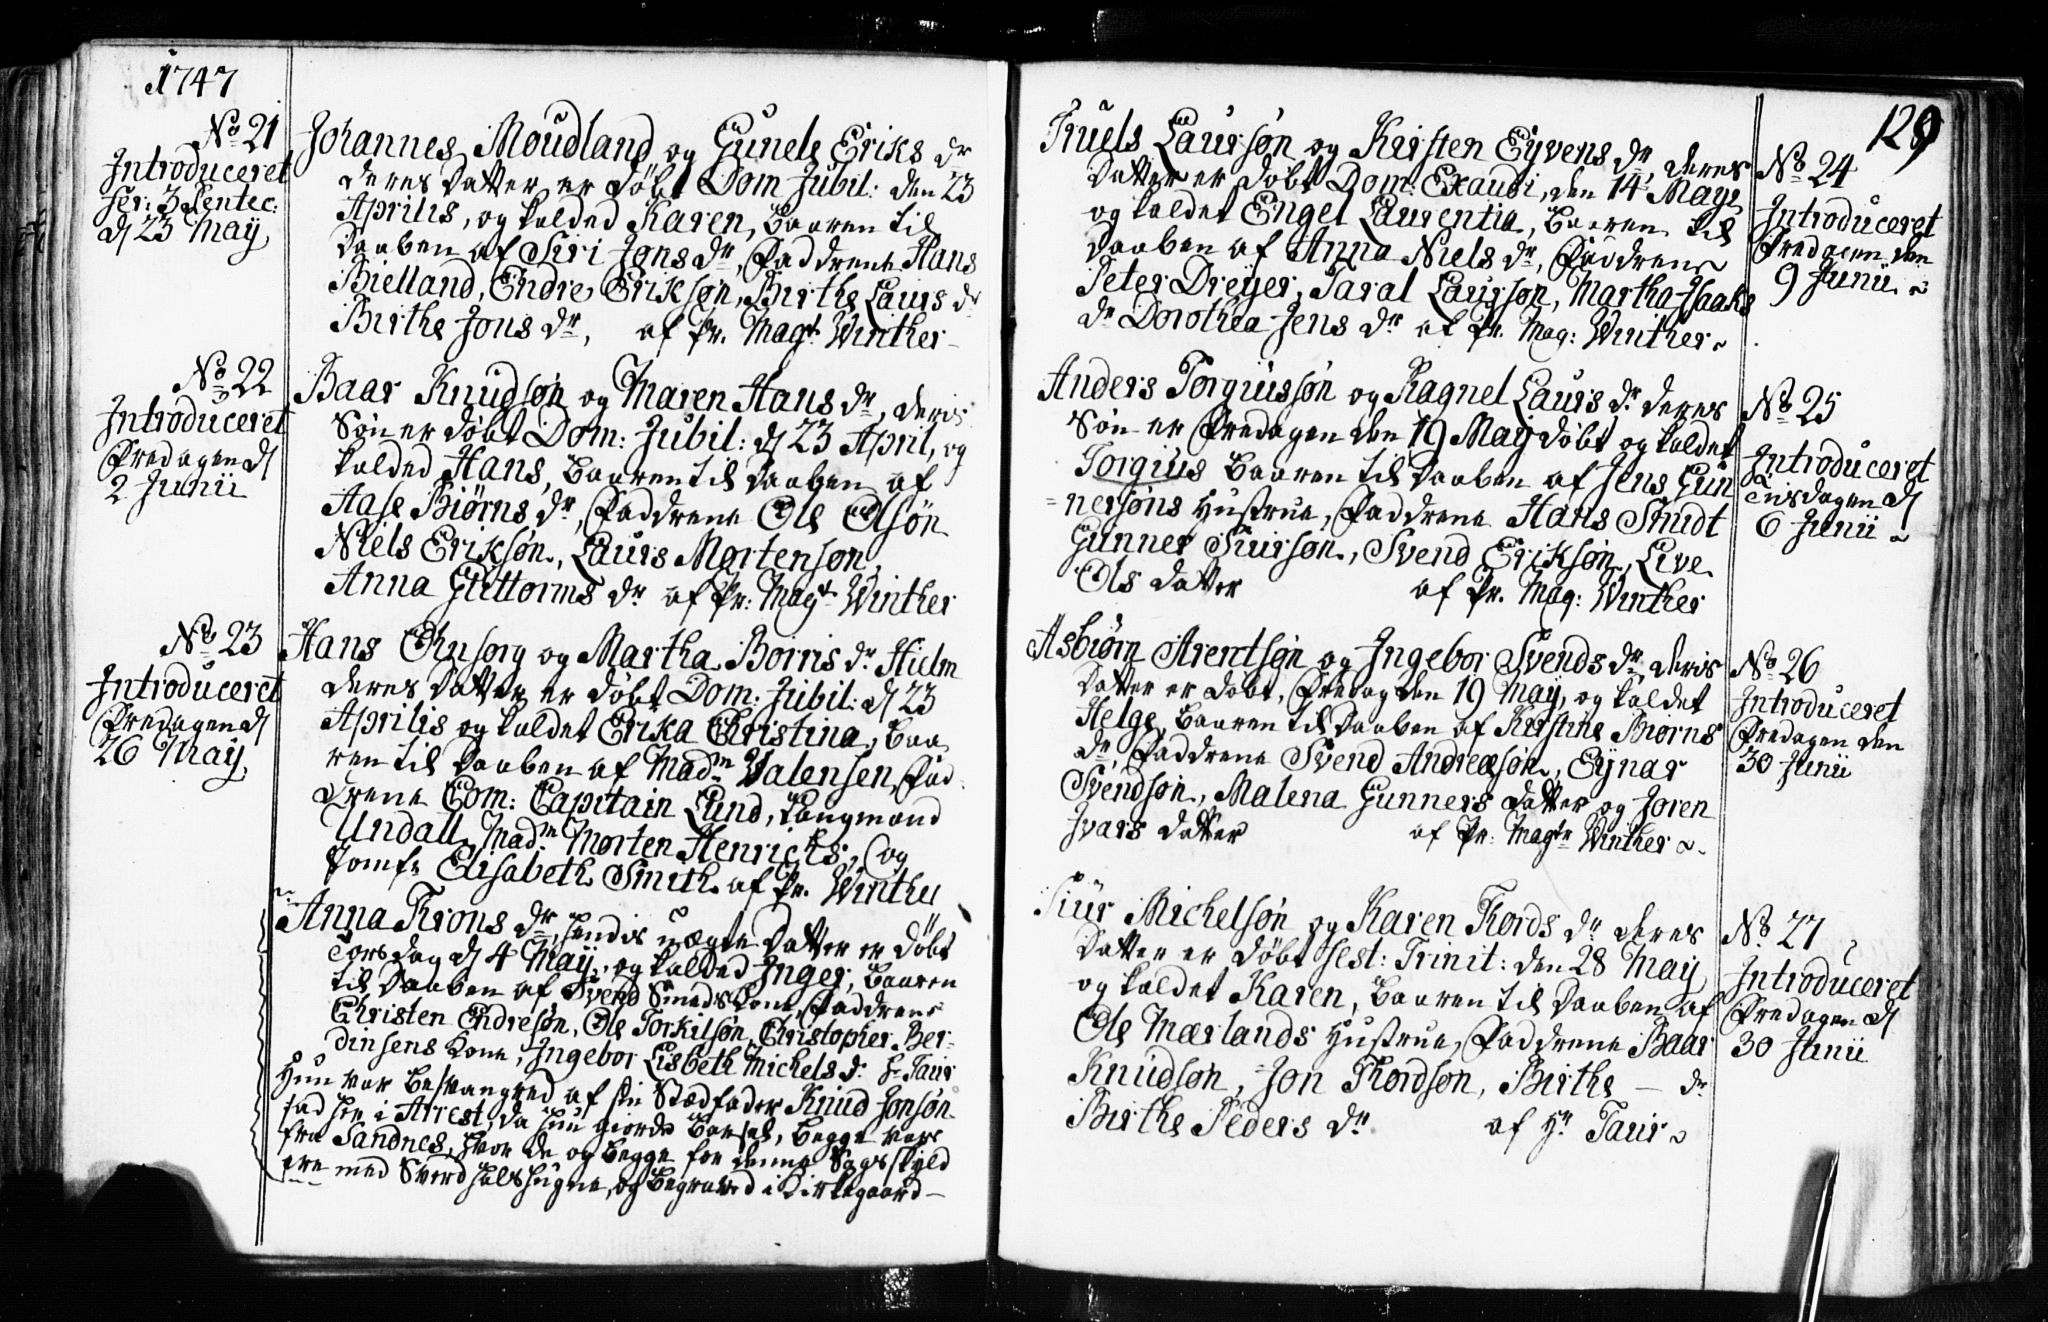 1747
No 21
Introduceret
fer: 3 Pentec:
d 23 Maÿ
Johannes Moudland og Gunels Eriks dr
deres Datter er døbt Dom Jubil: den 23
Aprilis, og kalded Karen, baaren til
Daaben af Siri Jons dr, Faddrene Hans
Bielland, Endre Eriksøn, Birthe Laurs dr
Birthe Jons dr, af Pr. Magr Winther
No 22
Introduceret
Fredagen d
2 Junii
Baar Knudsøn og Maren Hans dr, deris
Søn er døbt Dom: Jubil: d 23 April, og
kalded Hans, baaren til Daaben af
Aase Biørns dr, Faddrene Ole Olsøn
Niels Eriksøn, Laurs Mortensøn,
Anna Guttorms dr af Pr: Magr Winther
No 23
Introduceret
Fredagen d
26 Maÿ
Hans Ohnsorg og Martha Borris dr Hielm
deres Datter er døbt Dom: Jubil: d 23
Aprilis og kaldet Erika Christina, baa
ren til Daaben af Madm Valensen, Fad-
drene Com: Capitain Lund, Langmand
Undall, Madm Morten Henrichs, og
Jomfr Elisabeth Smith af Pr. Winther
Anna Trons dr, hendis uægte Datter er døbt
Torsdag d 4 Maÿ, og kalded Inger, baaren
til Daaben af Svend Smeds Kone, Faddrene
Christen Endresøn, Ole Torkilsøn, Christopher Ber-
dinsens Kone, Ingebor Lisbeth Michels dr Hr Taur
Hun var besvangred af sin Stedfader Knud Jonsøn
sad her i Arrest, da hun giorde Barsel, begge vare
fra Sandnes, hvor de og begge for denne Sags skyld
ere med Sverd halshugne, og begraved i Kirkegaard
129
Truels Laursøn og Kirsten Eyvens dr, deres
Datter er døbt Dom: Exaudi, den 14 Maÿ
og kaldet Engel Laurentia, baaren til
Daaben af Anna Niels dr, Faddrene
Peter Dreyer, Taral Laursøn, Martha Isaaks
dr Dorothea Jens dr af Pr. Mag: Winther
No 24
Introduceret
Fredagen den
9 Junii
Anders Torgiussøn og Ragnel Laurs dr deres
Søn er Fredagen den 19 Maÿ døbt og kaldet
Torgius baaren til Daaben af Jens Gun
=nersøns Hustrue, Faddrene Hans Smidt
Gunner Siursøn, Svend Eriksøn, Live
Ols datter af Pr. Mag: Winther
No 25
Introduceret
Tiisdagen d
6 Junii
Asbiørn Arentsøn og Ingebor Svends dr deris
Datter er døbt, Fredag den 19 Maÿ, og kaldet
Helge, baaren til Daaben af Kirstine Biørns
dr, Faddrene Svend Andreasøn, Eynar
Svendsøn, Malena Gunners datter og Joren
Ivars datter af Pr: Magtr Winther
No 26
Introduceret
Fredagen den
30 Junii
Siur Michelsøn og Karen Thords dr deres
Datter er døbt Fest: Trinit: den 28 Maÿ
og kaldet Karen, baaren til Daaben af
Ole Mærlands Hustrue, Faddrene Baar
Knudsøn, Jon Thordsøn, Birthe — dr
Birthe Peders dr af Hr Taur
No 27
Introduceret
Fredagen d
30 Junii